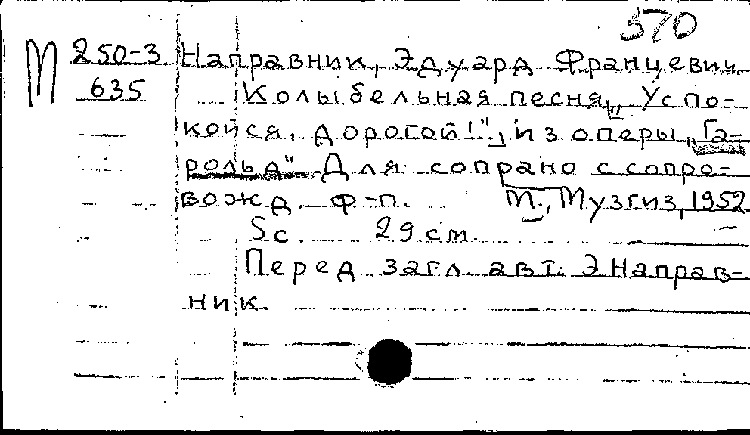 570
М 250-3 Направник, Эдуард Францевич.
635 Колыбельная песня „Успо-
койся, дорогой!", из оперы „Га-
рольд" Для сопрано с сопро-
вожд. ф-п. М., Музгиз, 1952
5 с. 29 см.
Перед загл. авт. Э Направ-
ник.